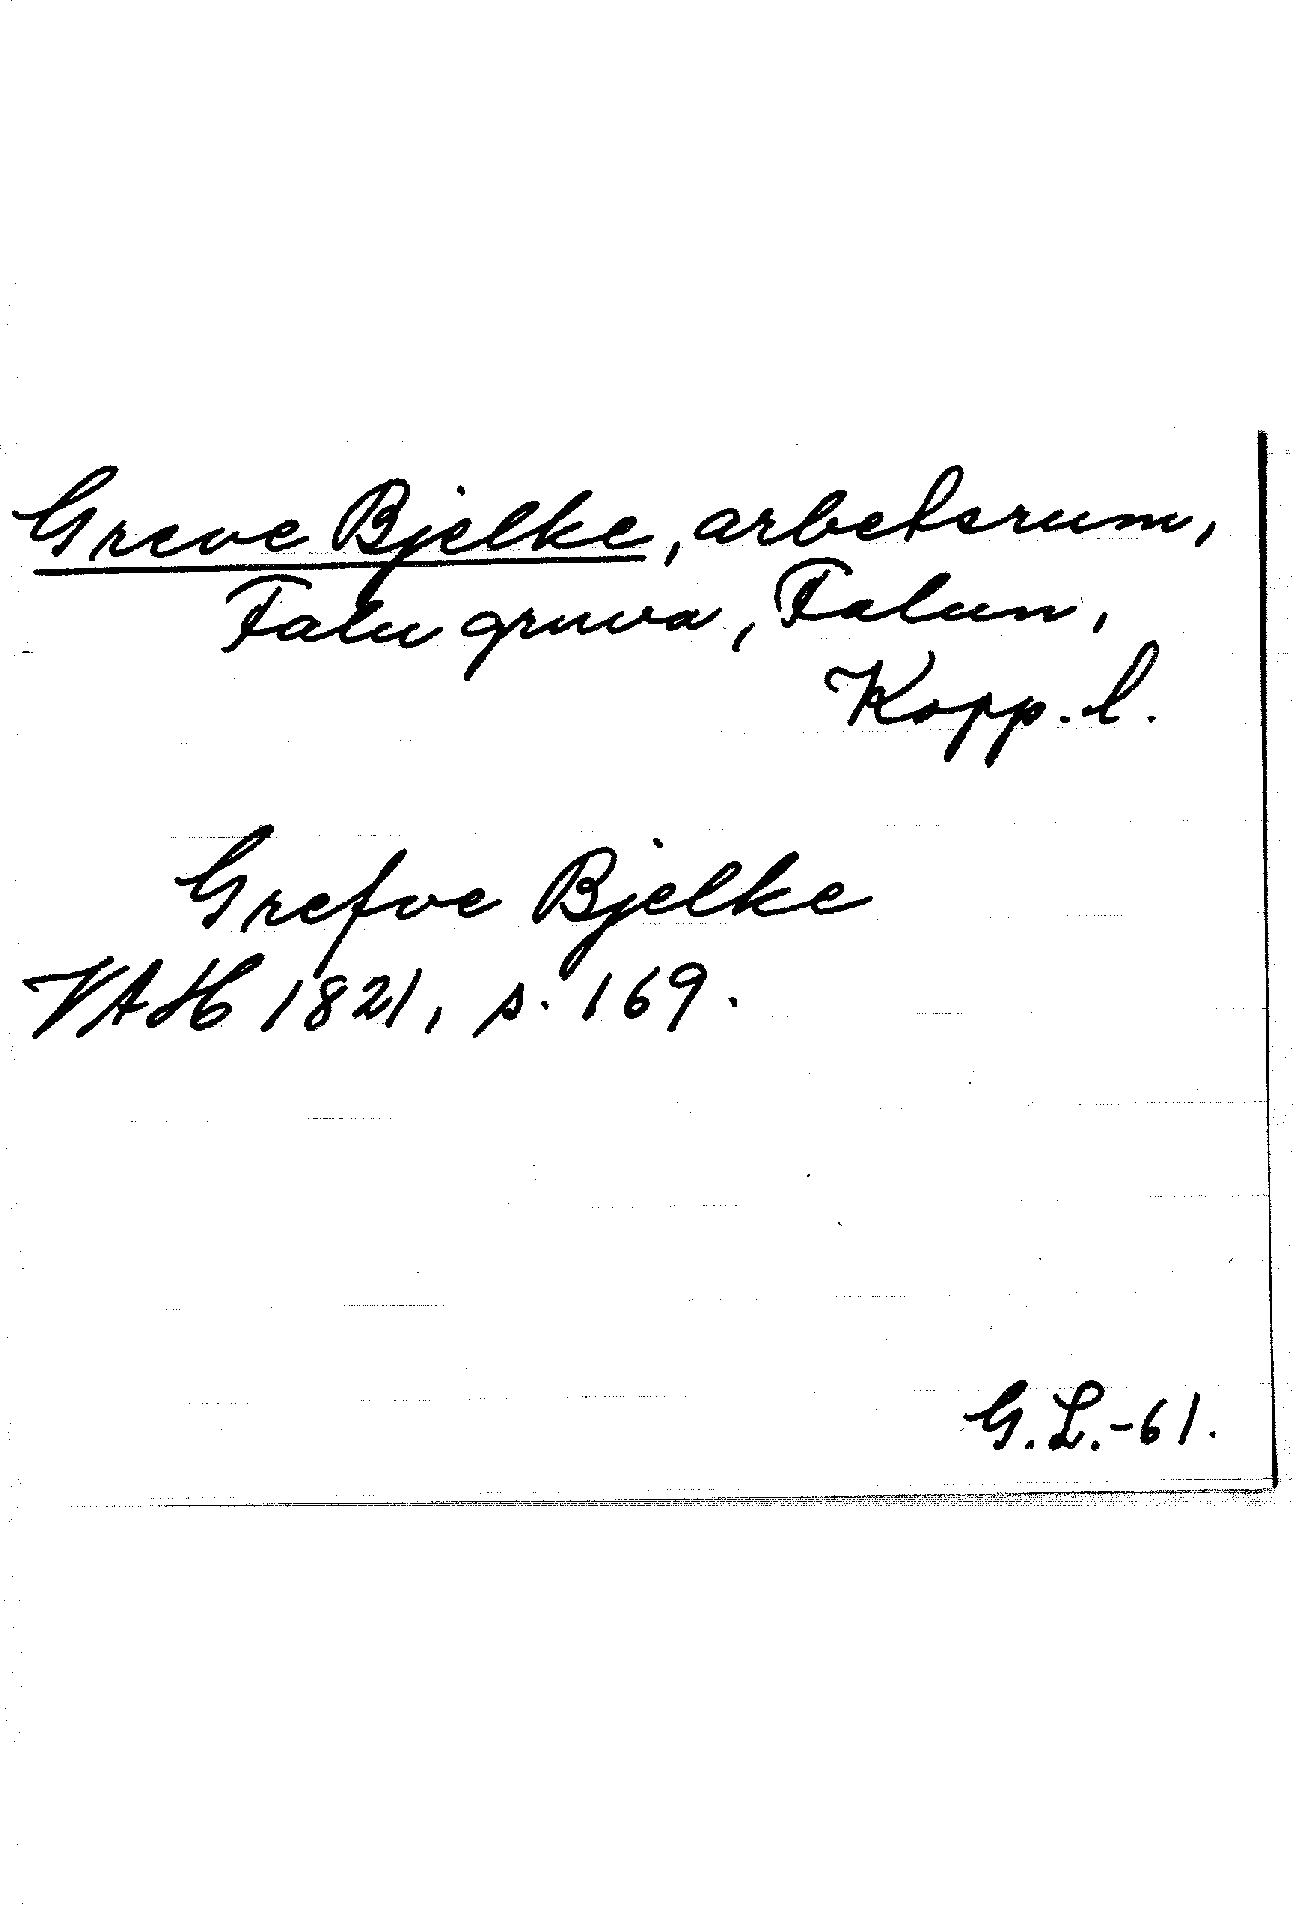 Greve Bjelke, arbetsrum,
Falu gruva, Falun,
Kopp. l.
Grefve Bjelke
VAH 1821, s. 169.
G.L.-61.